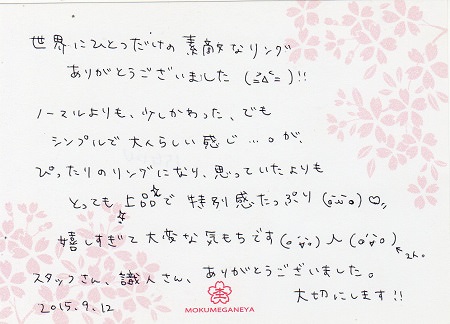 世界にひとつだけの素敵なリング
ありがとうございました (≧∆≦)!!
ノーマルよりも、少しかわった、でも
シンプルで大人らしい感じ…。が、
ぴったりのリングになり、思っていたよりも
とっても上品で特別感たっぷり(o'ω'o)♡,,
嬉しすぎて大変な気もちです(o'ω'o)人(o'ω'o)
↖2人。
スタッフさん、識人さん、ありがとうございました。
大切にします!!
2015.9.12
MOKUMEGANEYA